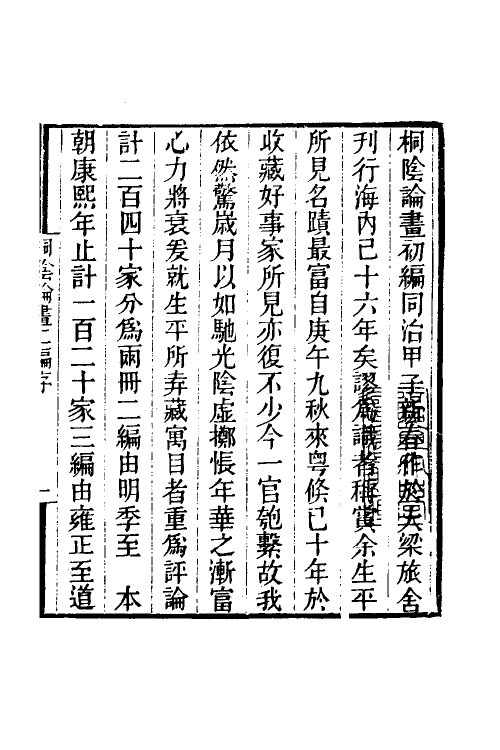 桐陰論畫初編同治甲子新春作於大梁旅舍
刊行海內已十六年矣謬為識者稱賞余生平
所見名蹟最富自庚午九秋來粵倏已十年於
收藏好事家所見亦復不少今一官匏繫故我
依然驚歲月以如馳光陰虛擲悵年華之漸富
心力將衰爰就生平所弆藏寓目者重為評論
計二百四十家分為兩冊二編由明季至　本
朝康熙年止計一百二十家三編由雍正至道
桐陰論畫二編序
一